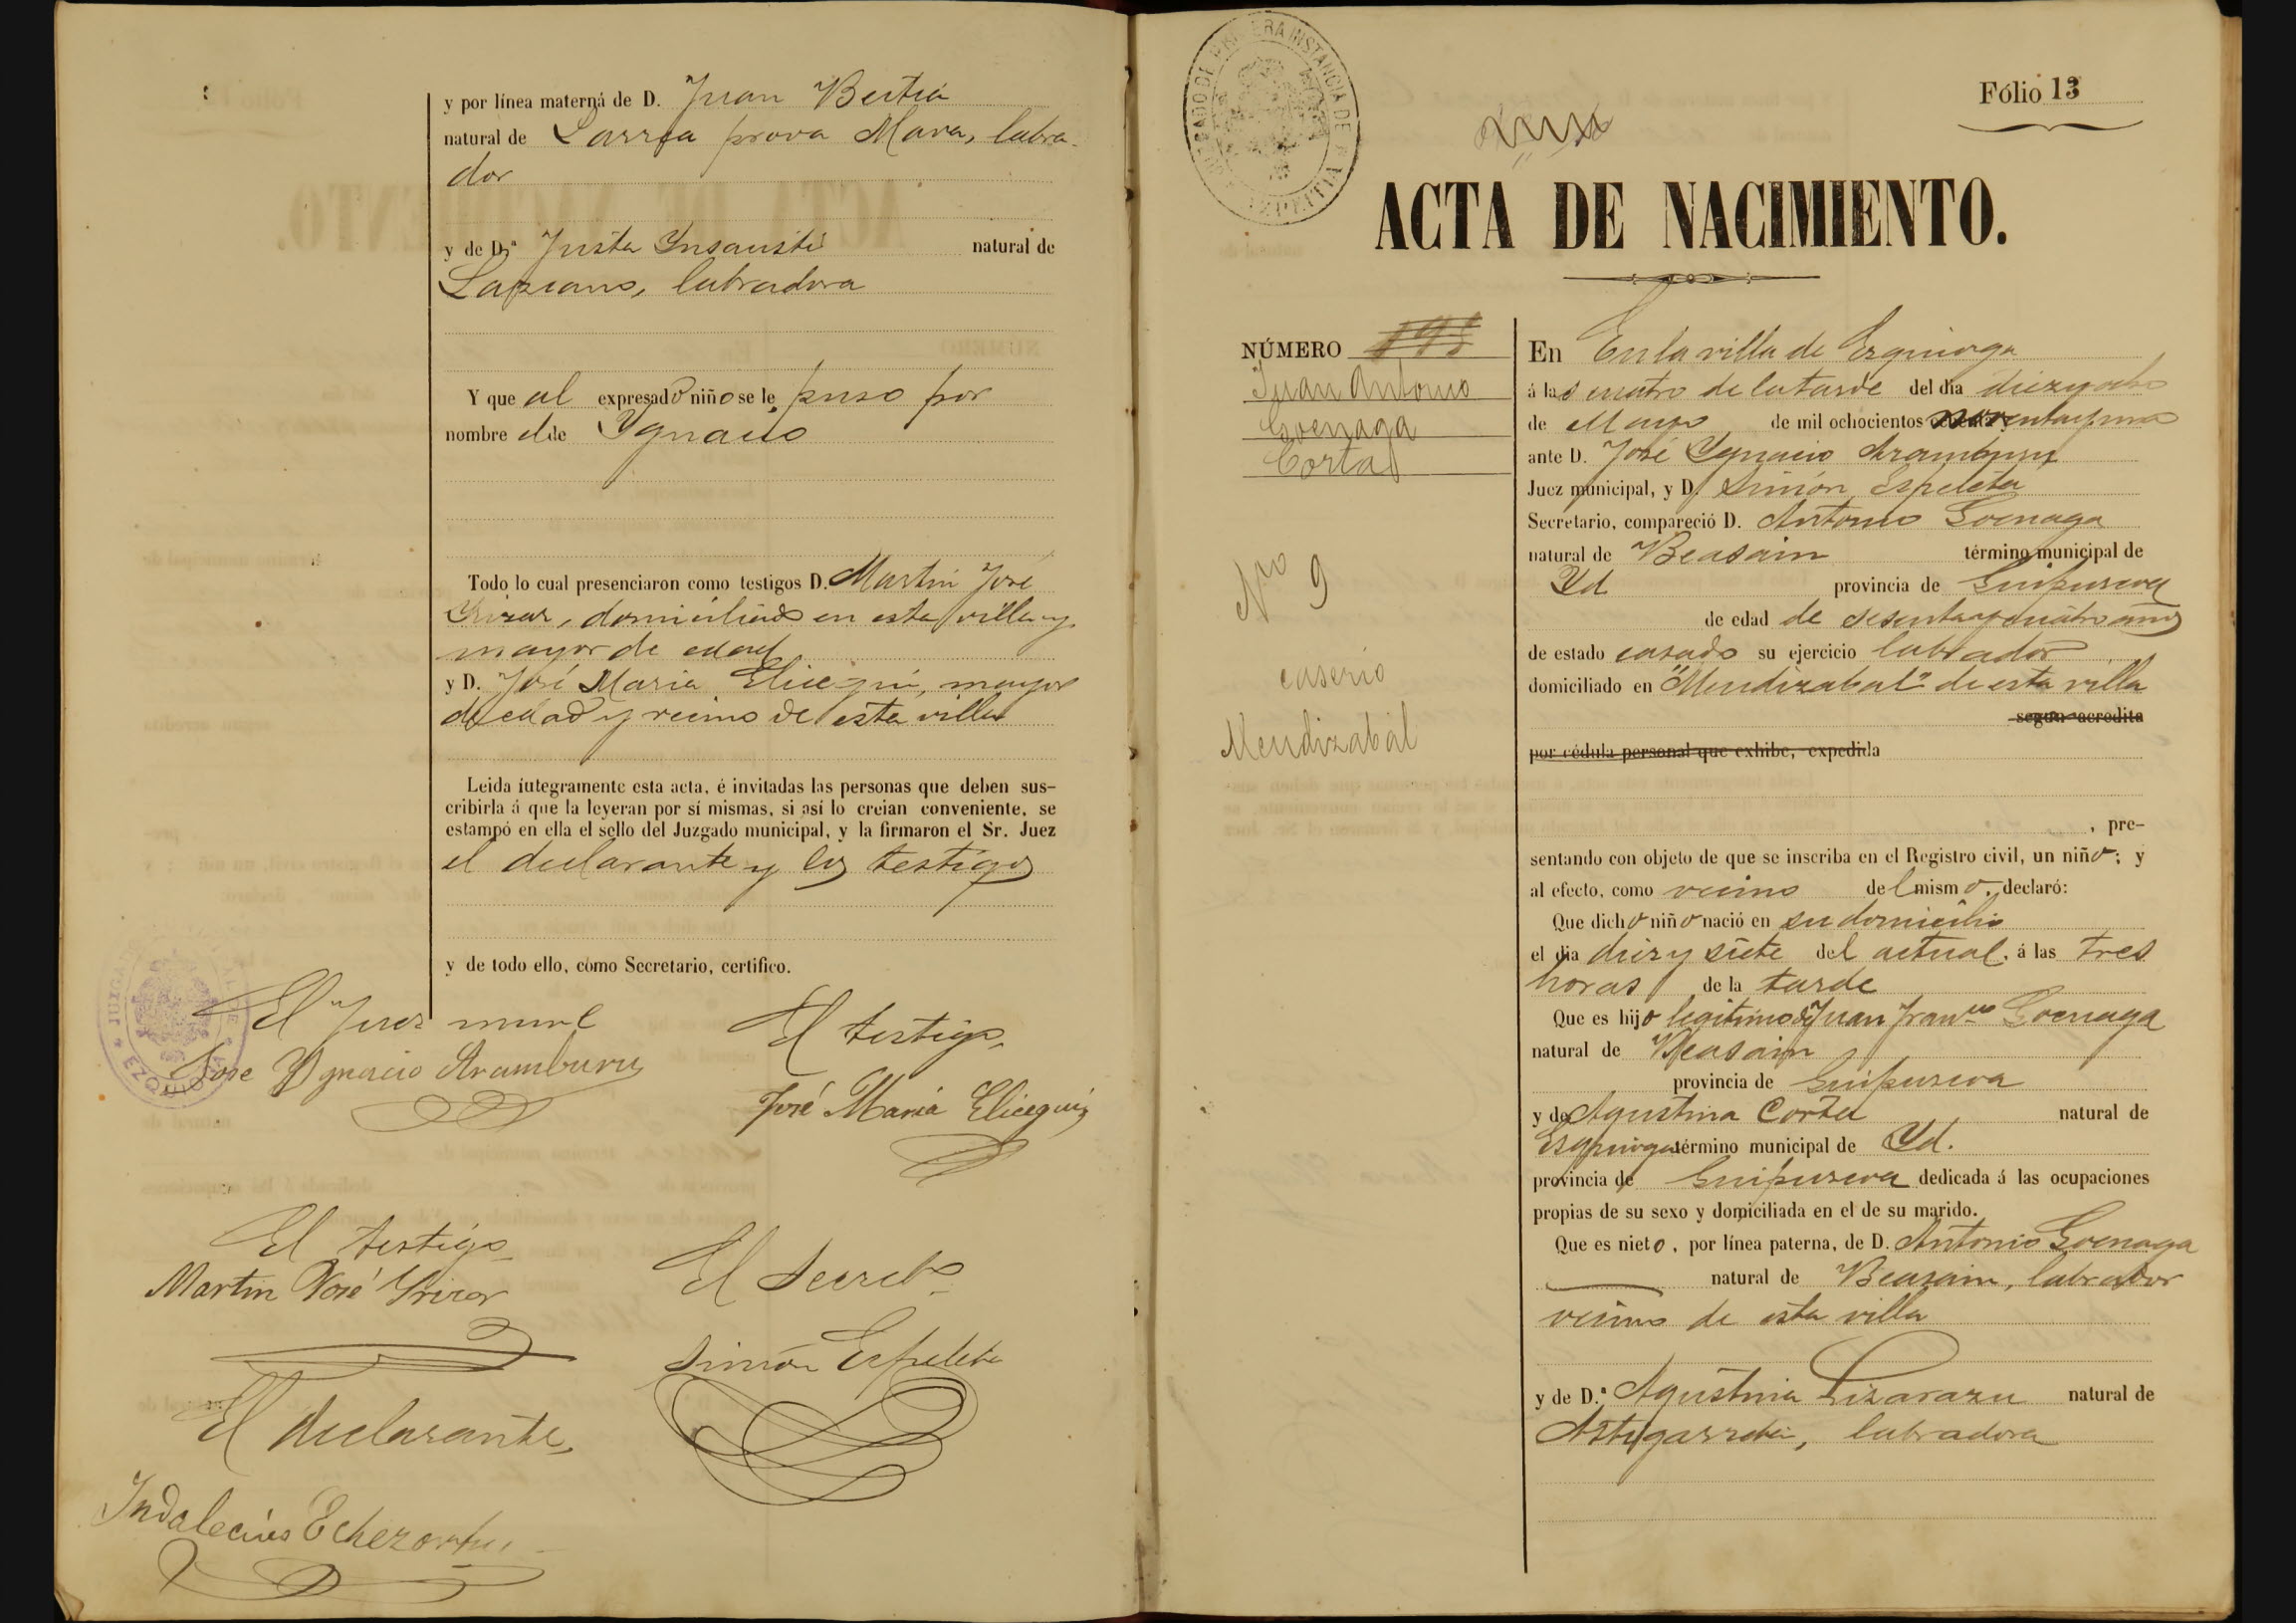 y por línea materná de D. Juan Bertia
natural de Larrea prova Mava, labra-
dor
y de D.ª Justa Ynsausti natural de
Lazcano, labradora
Y que al expresado niño se le puso por
nombre de Ygnacio
Todo lo cual presenciaron como testigos D. Martin José
Yrizar, domiciliado en esta villa y
mayor de edad
y D. José Maria Elicegui, mayor
de edad y vecino de esta villa
Leida íntegramente esta acta, é invitadas las personas que deben sus-
cribirla á que la leyeran por sí mismas, si así lo creian conveniente, se
estampó en ella el sello del Juzgado municipal, y la firmaron el Sr. Juez
el declarante y los testigos
y de todo ello, como Secretario, certifico.
El Juez munl
Jose Ygnacio Aramburu
El testigo,
José Maria Elicegui
El testigo
Martin José Yrizar
El Secreto
Simón Espeleta
El declarante,
Indalecio Echezortu
JUZGADO DE PRIMERA INSTANCIA DE AZPEITIA
Fólio 13
ACTA DE NACIMIENTO.
NÚMERO
Juan Antonio
Goenaga
Corta
Nº 9
caserio
Mendizabal
En En la villa de Ezquioga
á las cuatro de la tarde del dia diez y ocho
de Mayo de mil ochocientos noventa y uno
ante D. José Ygnacio Aramburu
Juez municipal, y D. Simón Espeleta
Secretario, compareció D. Antonio Goenaga
natural de Beasain término municipal de
Yd provincia de Guipuzcoa
de edad de sesenta y cuatro años
de estado casado su ejercicio labrador
domiciliado en "Mendizabal" de esta villa
segun acredita
por cédula personal que exhibe, expedida
, pre-
sentando con objeto de que se inscriba en el Registro civil, un niño; y
al efecto, como vecino del mismo, declaró:
Que dicho niño nació en su domicilio
el dia diez y siete del actual, á las tres
horas de la tarde
Que es hijo legitimo de Juan Franco Goenaga
natural de Beasain
provincia de Guipuzcoa
y de Agustina Corta natural de
Ezquioga término municipal de Yd.
provincia de Guipuzcoa dedicada á las ocupaciones
propias de su sexo y domiciliada en el de su marido.
Que es nieto, por línea paterna, de D. Antonio Goenaga
natural de Beasain, labrador
vecino de esta villa
y de D.ª Agustina Lizarazu natural de
Astigarreta, labradora